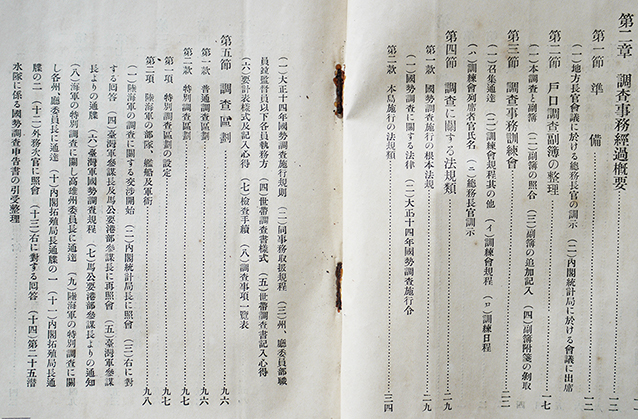 第二章 調查事務經過概要
第一節 準備
(一)地方長官會議に於ける總務長官の訓示 (二)內閣統計局に於ける會議に出席
第二節 戶口調查副簿の整理
(一)本調查と副簿 (二)副簿の照合 (三)副簿の追加記入 (四)副簿附箋の剝取
第三節 調查事務訓練會
(一)召集通達 (二)訓練會規程其の他 (イ)訓練會規程 (ロ)訓練日程
(ハ)訓練會列席者官氏名 (ニ)總務長官訓示
第四節 調查に關する法規類
第一款 國勢調查施行の根本法規 二九
(一)國勢調查に關する法律 (二)大正十四年國勢調查施行令
第二款 本島施行の法規類 三四
(一)大正十四年國勢調查施行規則 (二)同事務取扱規程 (三)州、廳委員部職
員竝監督員以下各員執務方 (四)世帶調查書樣式 (五)世帶調查書記入心得
(六)要計表樣式及記入心得 (七)檢查手續 (八)調查事項一覽表
第五節 調查區劃 九六
第一款 普通調查區劃 九六
第二款 特別調查區劃 九七
第一項 特別調查區劃の設定 九七
第二項 陸海軍の部隊、艦船及軍衙 九八
(一)陸海軍の調查に關する交涉開始 (二)內閣統計局長に照會 (三)右に對
する回答 (四)臺灣軍參謀長及馬公要港部參謀長に再照會 (五)臺灣軍參謀
長よりの通牒 (六)臺灣軍國勢調查規程 (七)馬公要港部參謀長よりの通知
(八)海軍の特別調查に關し高雄州委員長に通達 (九)陸海軍の特別調查に關
し各州、廳委員長に通達 (十)內閣拓殖局長通牒の一 (十一)內閣拓殖局長通
牒の二 (十二)外務次官に照會 (十三)右に對する回答 (十四)第二十五潛
水隊に係る國勢調查申告書の引受整理